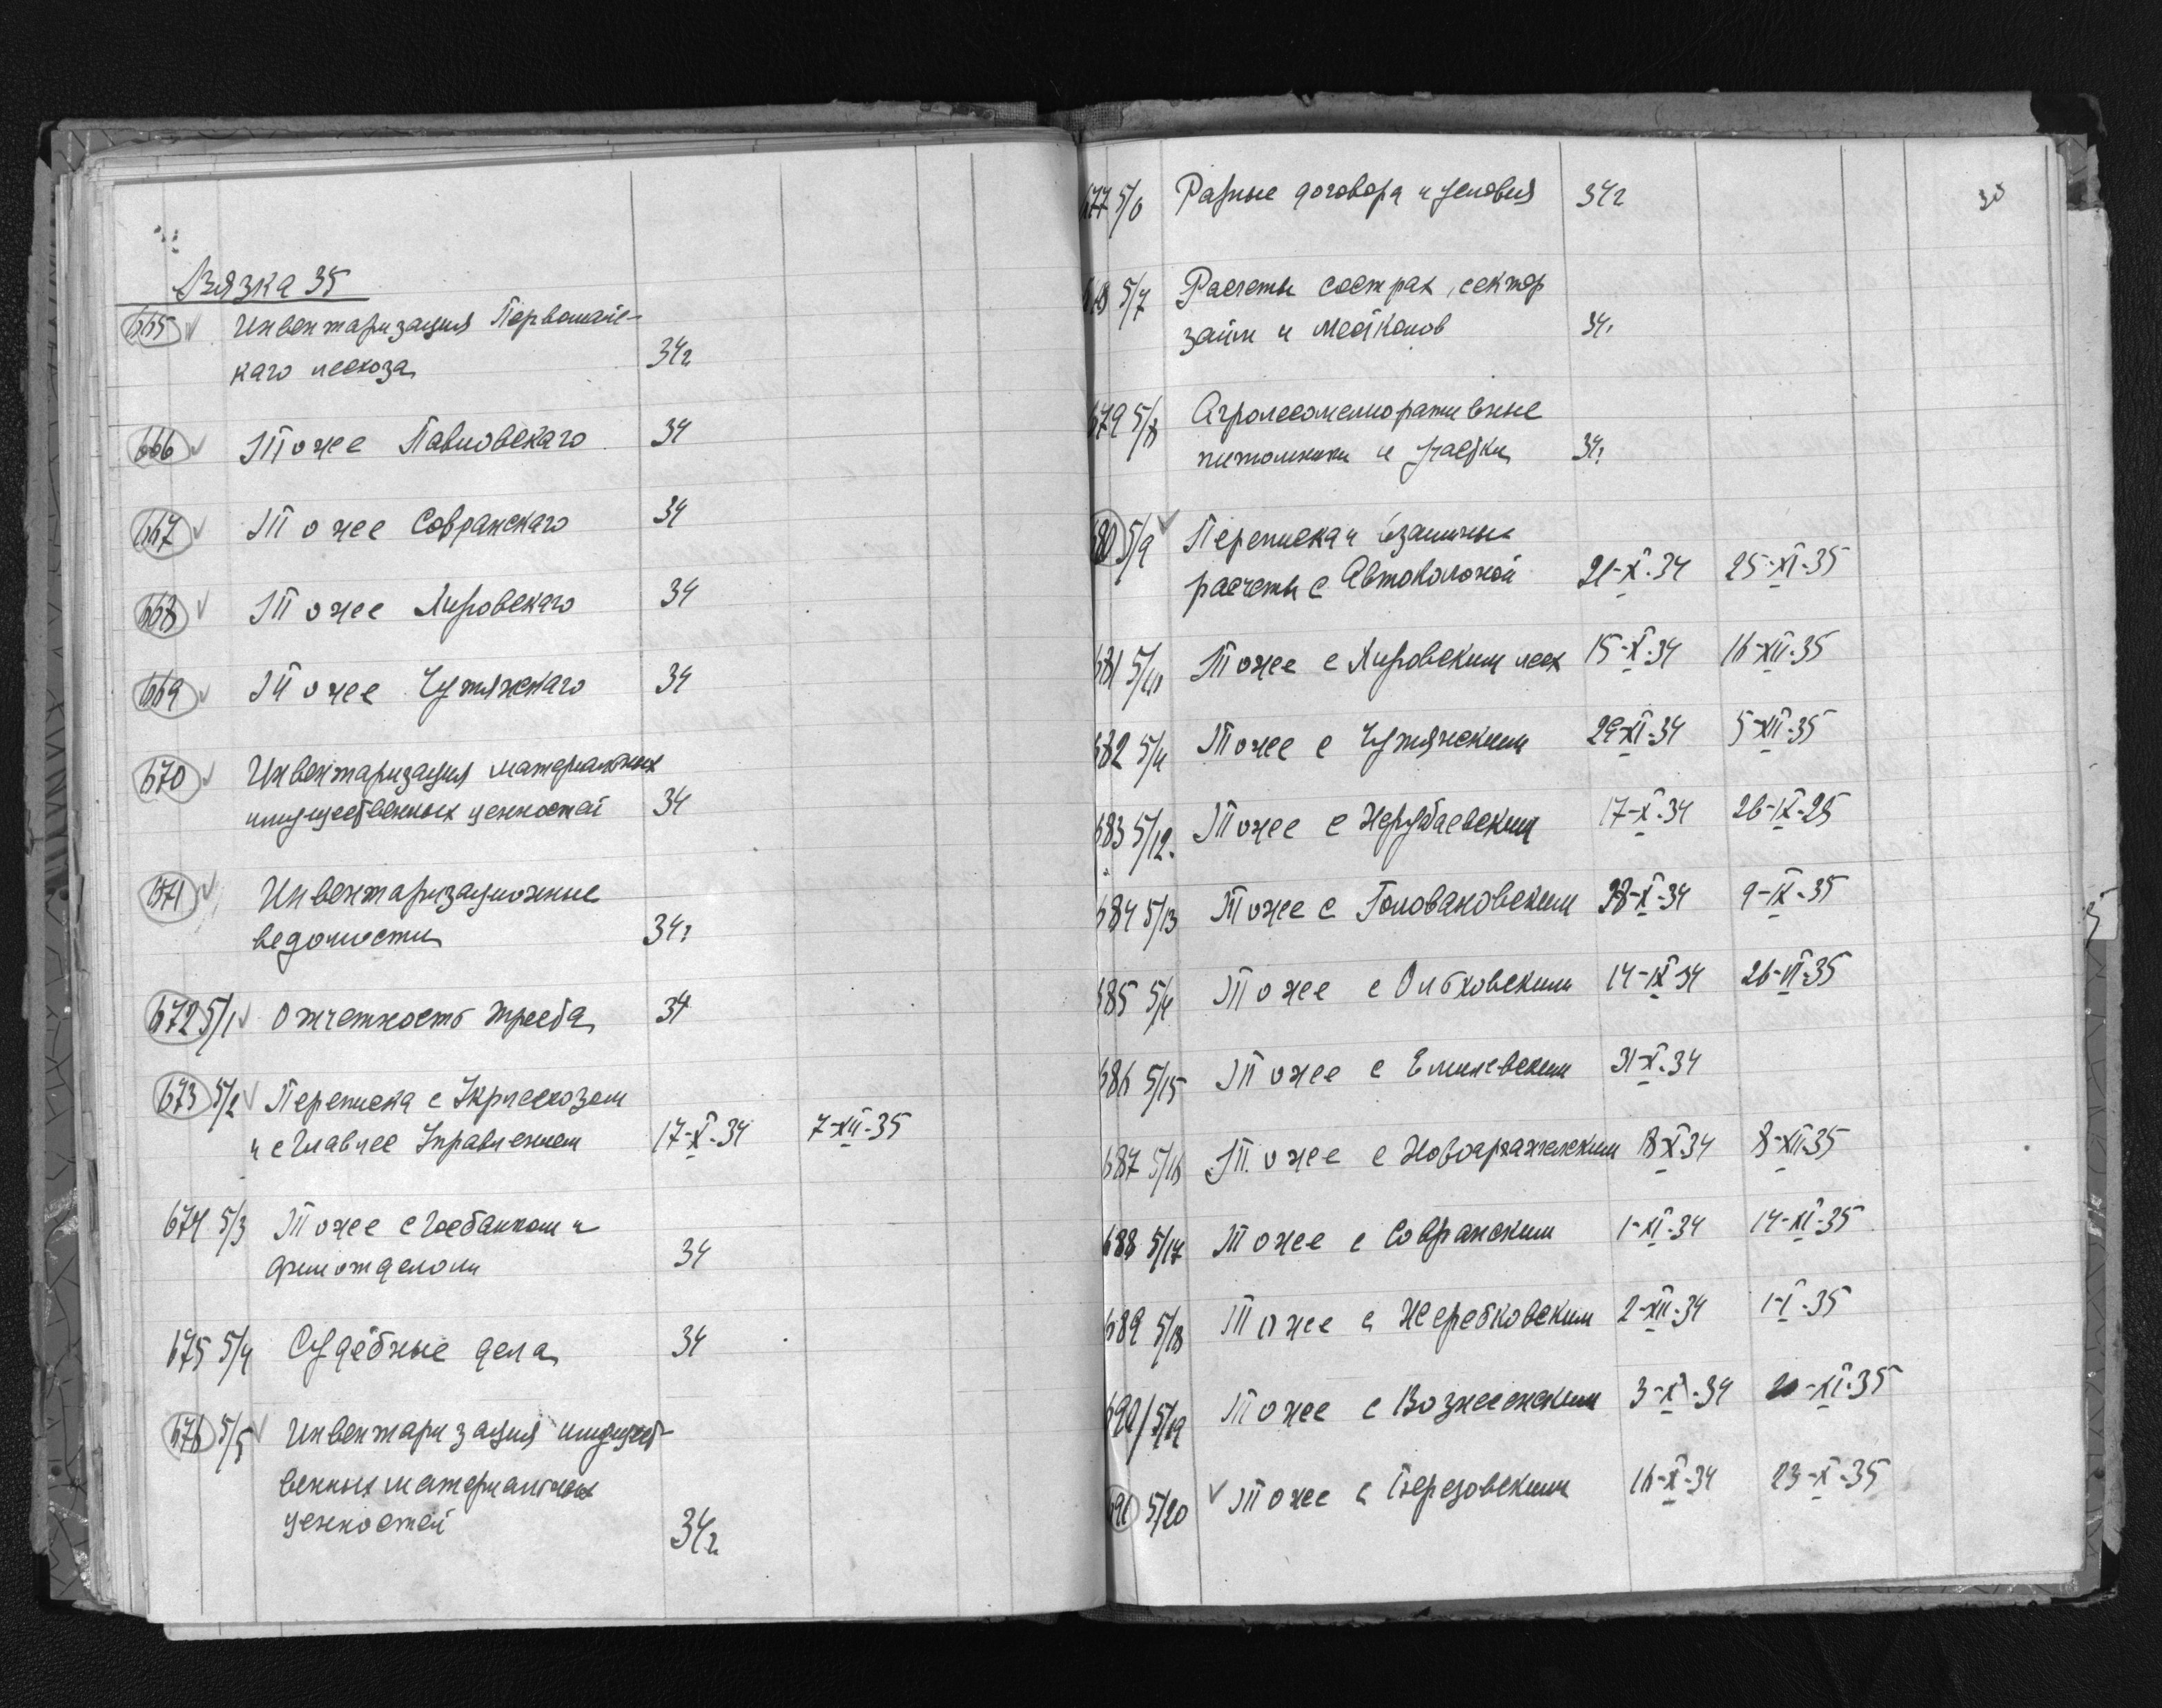 Вязка 35
665 Инвентаризация Первомайс-
каго лесхоза 34г
666 Тоже Павловскаго 34
667 Тоже Савранскаго 34
668 Тоже Кировскаго 34
669 Тоже Чутянскаго 34
670 Инвентаризация материальных
имущественных ценностей 34
671 Инвентаризационные
ведомости 34г
672 5/1 Отчетность треста 34
673 5/2 Переписка с Укрлесхозом
и с Главлес Управлением 17-X-34 7-XII-35
674 5/3 Тоже с Госбанком и
финотделом 34
675 5/4 Судебные дела 34
676 5/5 Инвентаризация имущест-
венных материальных
ценностей 34г
677 5/6 Разные договора и условия 34г
678 5/7 Расчеты соцстрах, сектор
займ и месткомов 34г
679 5/8 Агролесомелиоративные
питомники и участки 34г
680 5/9 Переписка и взаимные
расчеты с Автоколоной 21-X-34 25-XI-35
681 5/10 Тоже с Кировским лесх 15-X-34 16-XII-35
682 5/11 Тоже с Чутянским 29-XI-34 5-XII-35
683 5/12. Тоже с Нерубаевским 17-X-34 26-IX-25
684 5/13 Тоже с Головановским 28-X-34 9-IX-35
685 5/14 Тоже с Ольховским 14-IX-34 26-VI-35
686 5/15 Тоже с 31-X-34
687 5/16 Тоже с Новоархангельским 18-X-34 8-XII-35
688 5/17 Тоже с Савранским 1-XI-34 14-XI-35
689 5/18 Тоже с Жеребковским 2-XII-34 1-I-35
690/5/19 Тоже с Вознесенским 3-X-34 20-XI-35
691 5/20 Тоже с Березовским 16-X-34 23-X-35